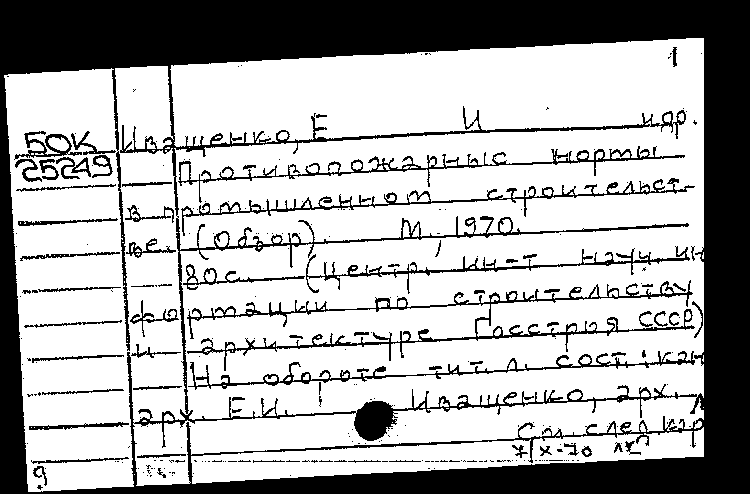 1
50К Иващенко, Е И и др.
25249 Противопожарные нормы
в промышленном строительст-
ве. (Обзор). М., 1970.
80с. (Центр. ин-т науч. ин
формации по строительству
и архитектуре Госстроя СССР)
На обороте тит. л. сост.: кан
арх. Е.И. Иващенко, арх.
См. след. кар
7/X-70
9